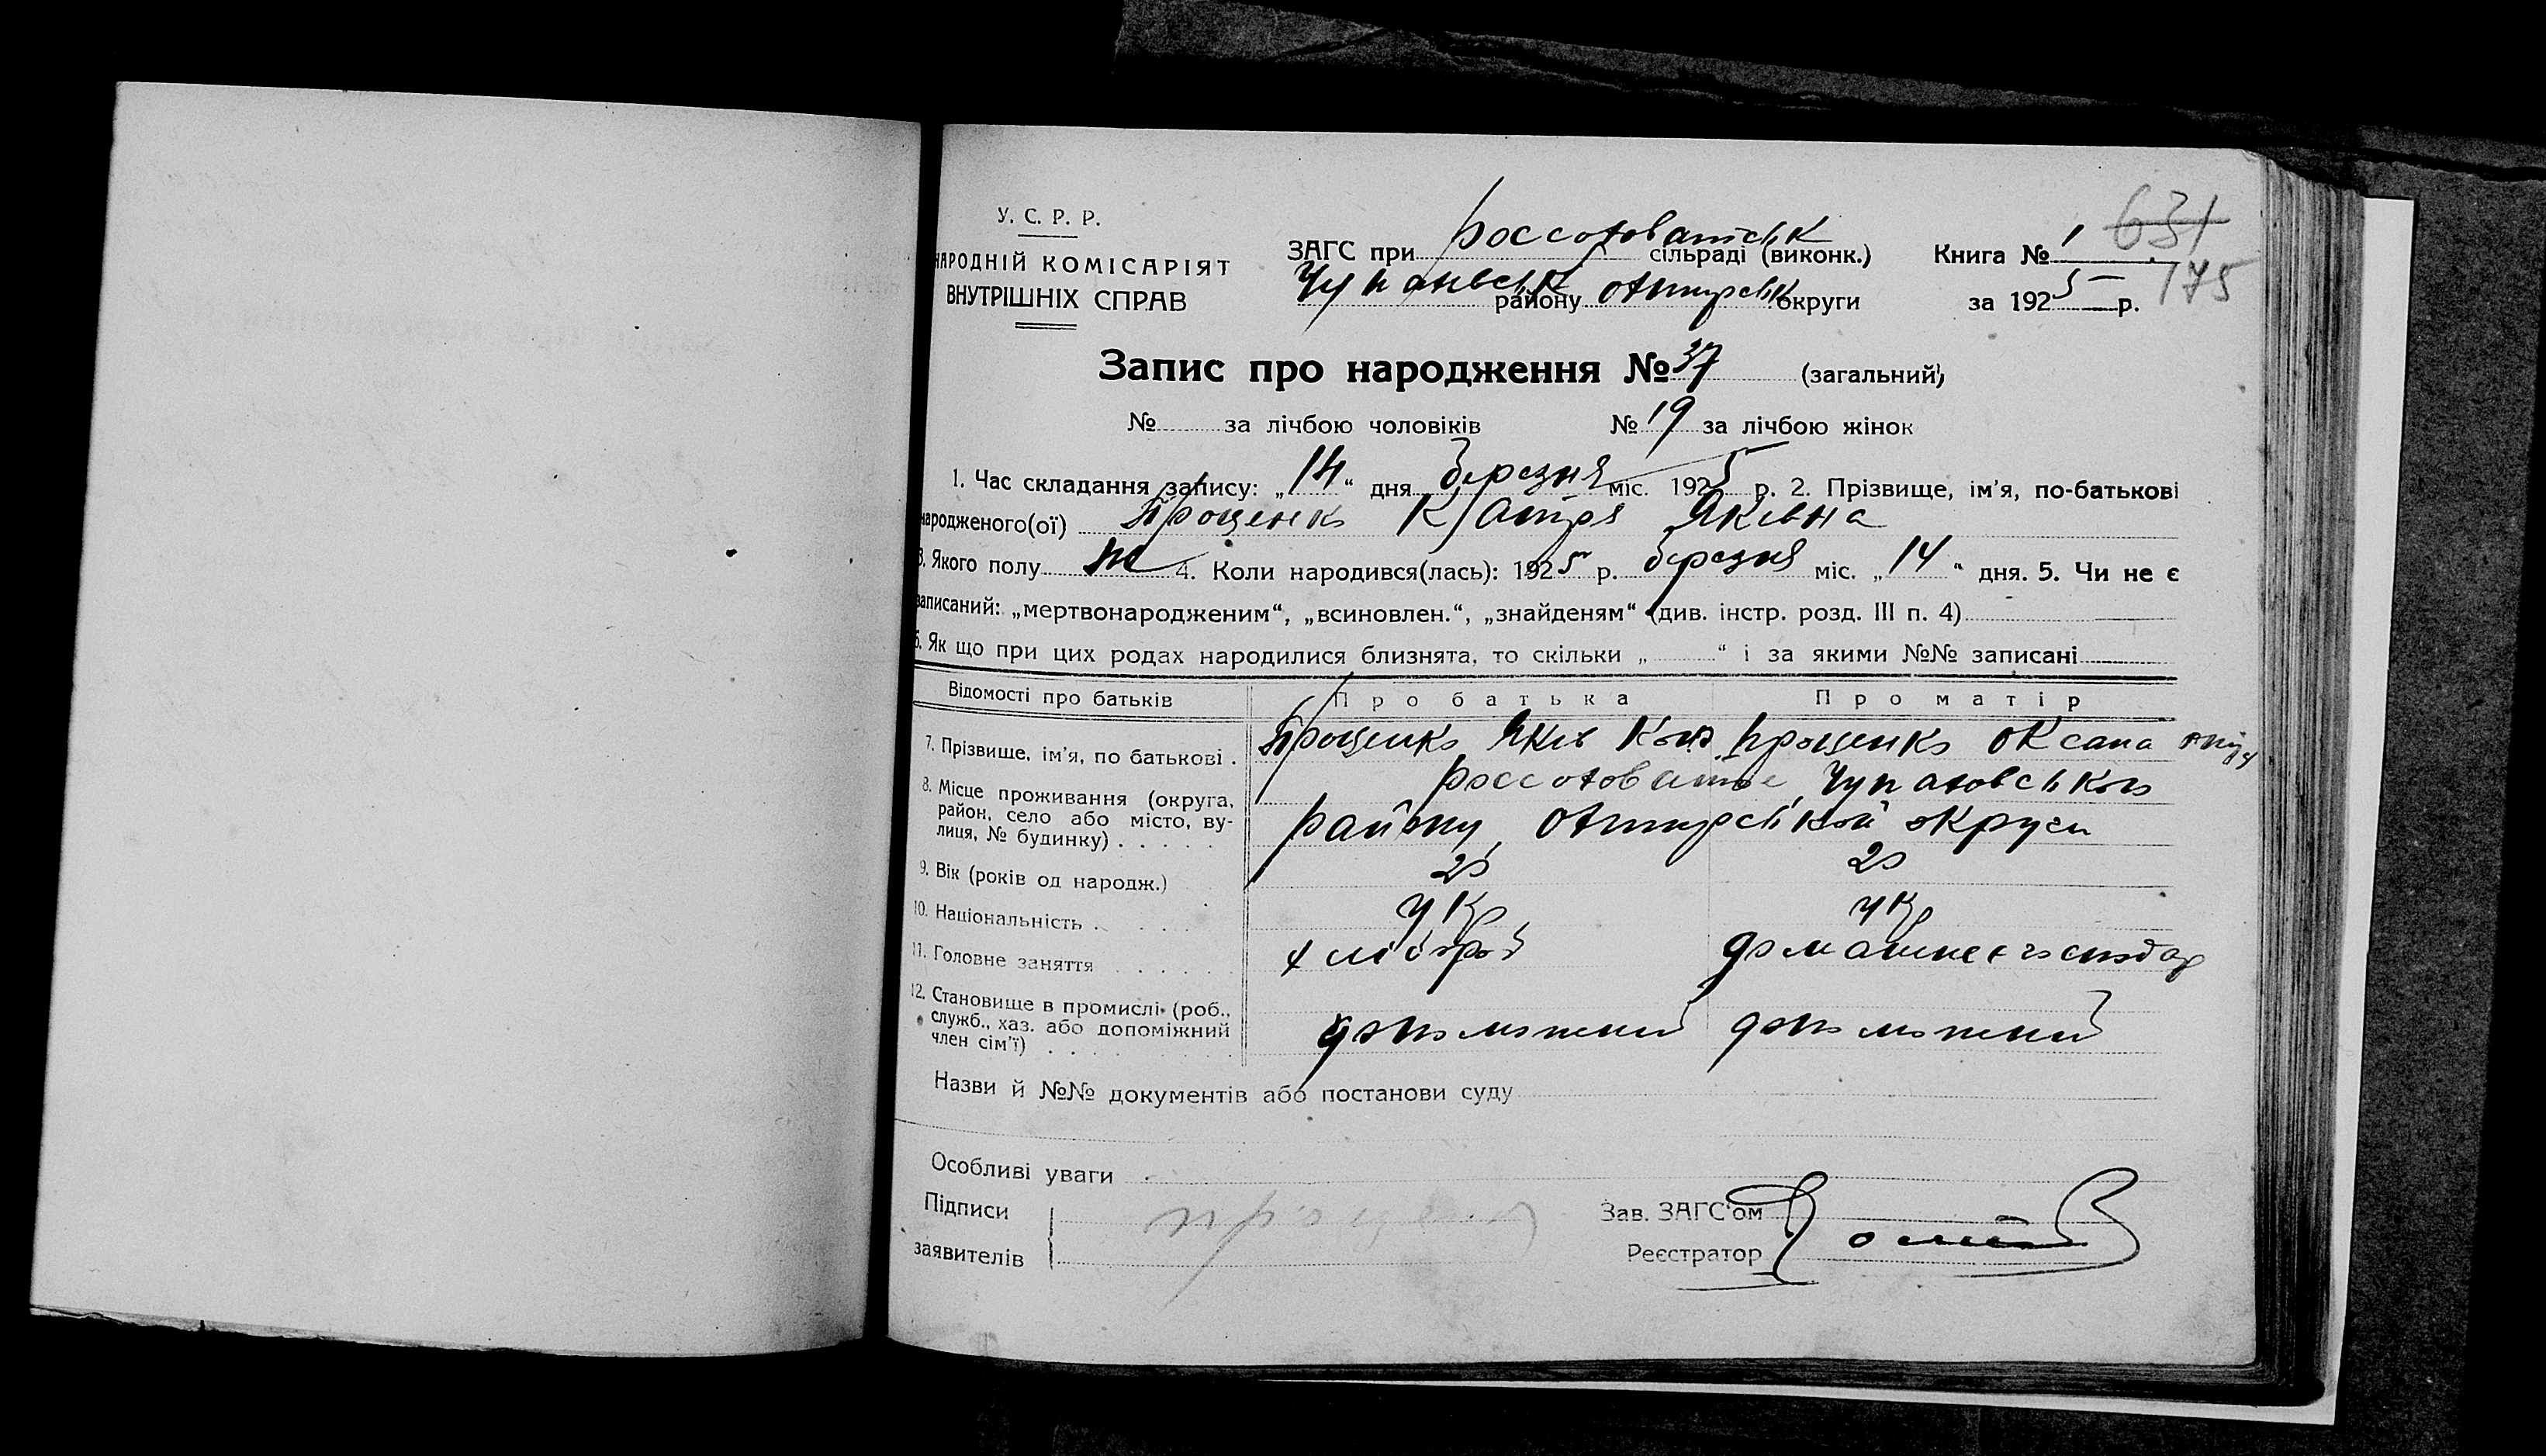 У. С. Р. Р.
НАРОДНІЙ КОМІСАРІЯТ
ВНУТРІШНІХ СПРАВ
ЗАГС при россоховатськ сільраді (виконк.)
Чупахівськ району охтирськ округи
Книга № 1
631
за 1925 р.
175
Запис про народження № 37 (загальний)
№ за лічбою чоловіків № 19 за лічбою жінок
1. Час складання запису: „14“ дня березня міс. 1925 р. 2. Прізвище, ім'я, по-батькові
народженого(ої) Проценко Катря Яківна
3. Якого полу ж 4. Коли народився(лась): 1925 р. березня міс. „14“ дня. 5. Чи не є
записаний: „мертвонародженим“, „всиновлен.“, „знайденям“ (див. інстр. розд. III п. 4)
6. Як що при цих родах народилися близнята, то скільки „ “ і за якими №№ записані
Відомості про батьків Про батька Про матір
7. Прізвище, ім'я, по батькові . Проценко Яків Проценко Оксана
8. Місце проживання (округа, район, село або місто, вулиця, № будинку) . . . . .
району охтирської округи
9. Вік (років од народж.)
10. Національність . . . . . укр укр
11. Головне заняття . . . . . . хлібороб домашнее господар
12. Становище в промислі (роб., служб., хаз. або допоміжний член сім'ї) . . . . . допоможний допоможний
Назви й №№ документів або постанови суду
Особливі уваги
Підписи
заявителів
Зав. ЗАГС'ом
Реєстратор